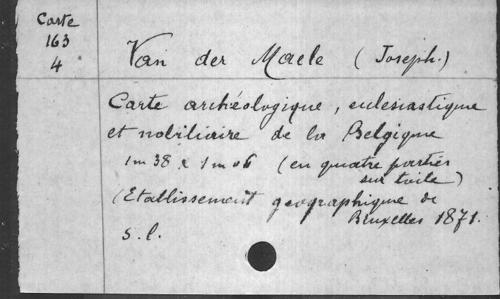 Carte
163
4
Van der Maele (Joseph.)
Carte archéologique, ecclesiastique
et nobiliaire de la Belgique
1m 38 x 1m 06 (en quatre parties
sur toile)
(Etablissement geographique de
Bruxelles 1871.
s.l.